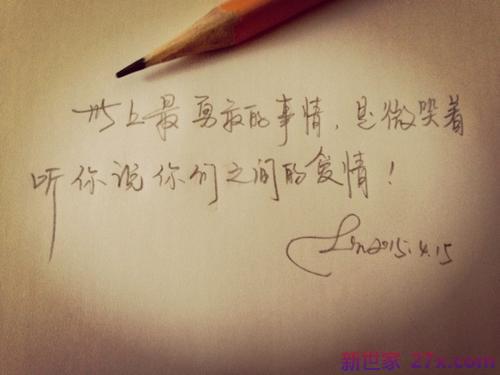 世上最勇敢的事情，是微笑着
听你说你们之间的爱情！
Lin2015.4.15
新世家 27x.com